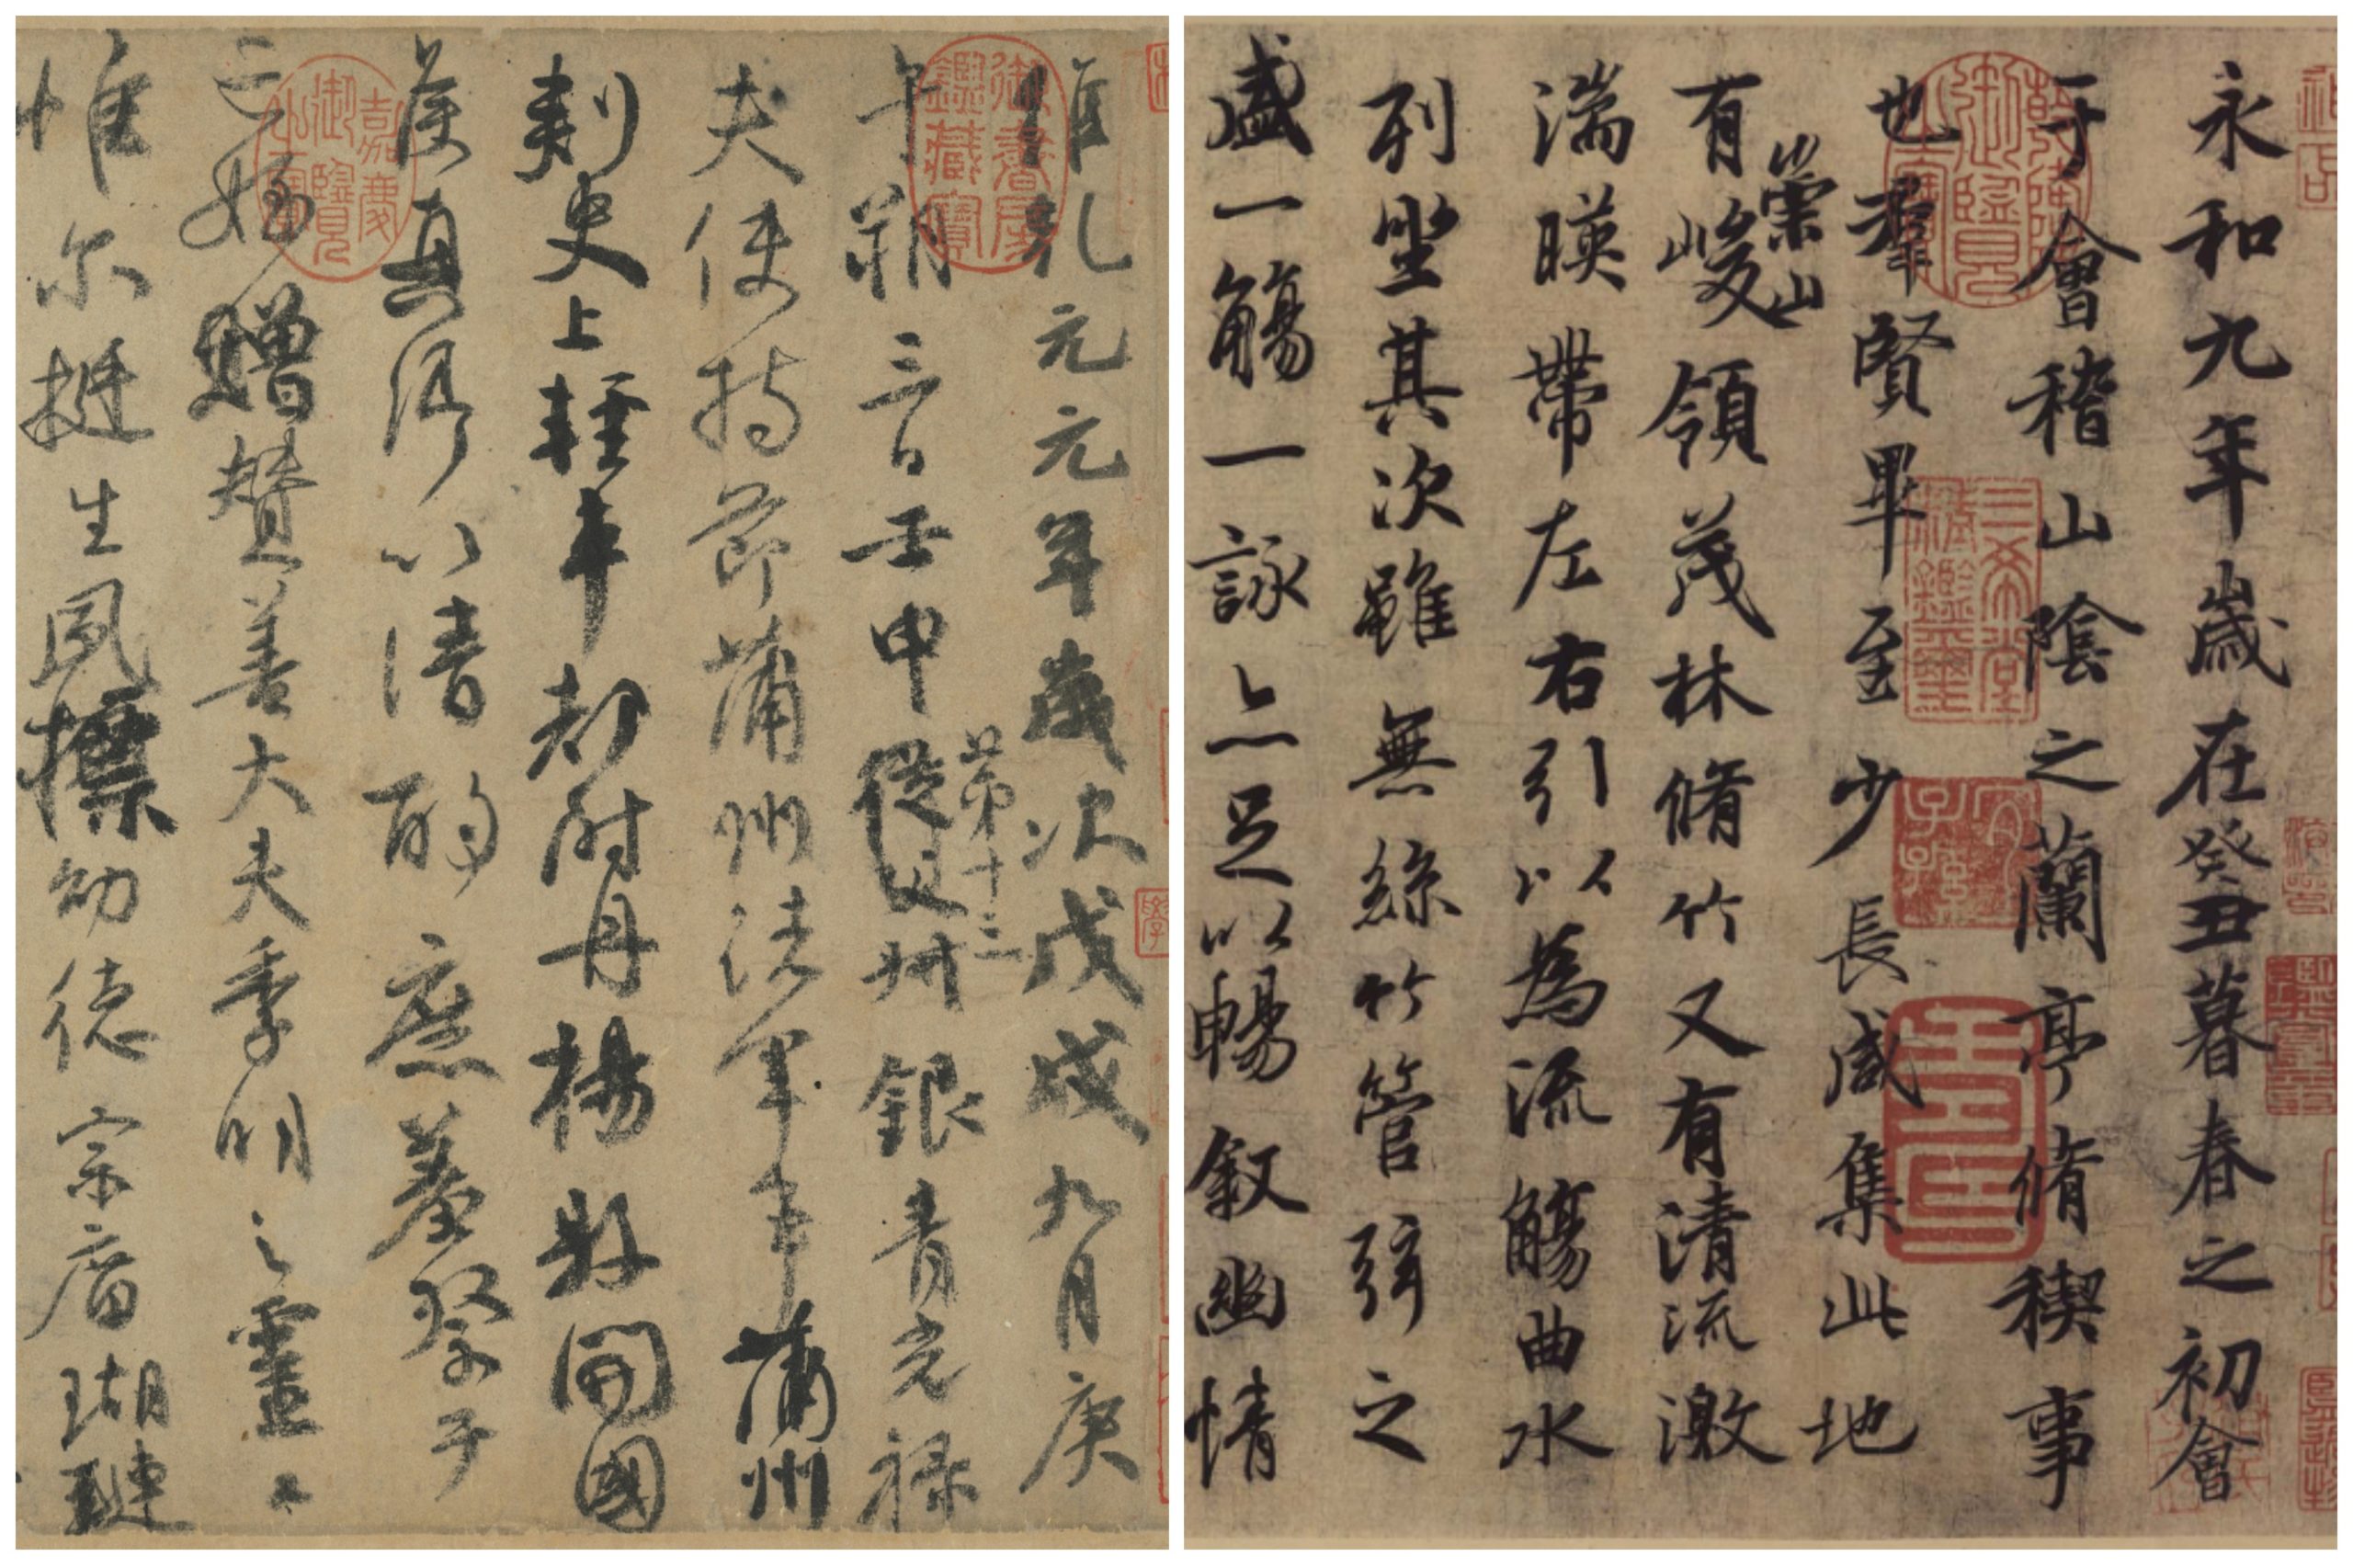 維乾元元年歲次戊戌九月庚
午朔三日壬申第十三從父叔銀青光祿
夫使持節蒲州諸軍事蒲州
刺史上輕車都尉丹楊縣開國
侯真卿以清酌庶羞祭于
亡姪贈贊善大夫季明之靈曰
惟尔挺生夙標幼德宗廟瑚璉
御書房鑑藏寶
嘉慶御覽之寶
永和九年歲在癸丑暮春之初會
于會稽山陰之蘭亭脩稧事
也羣賢畢至少長咸集此地
有崇山峻領茂林脩竹又有清流激
湍暎帶左右引以為流觴曲水
列坐其次雖無絲竹管弦之
盛一觴一詠亦足以暢敘幽情
乾隆御覽之寶
三希堂精鑑璽
宜子孫